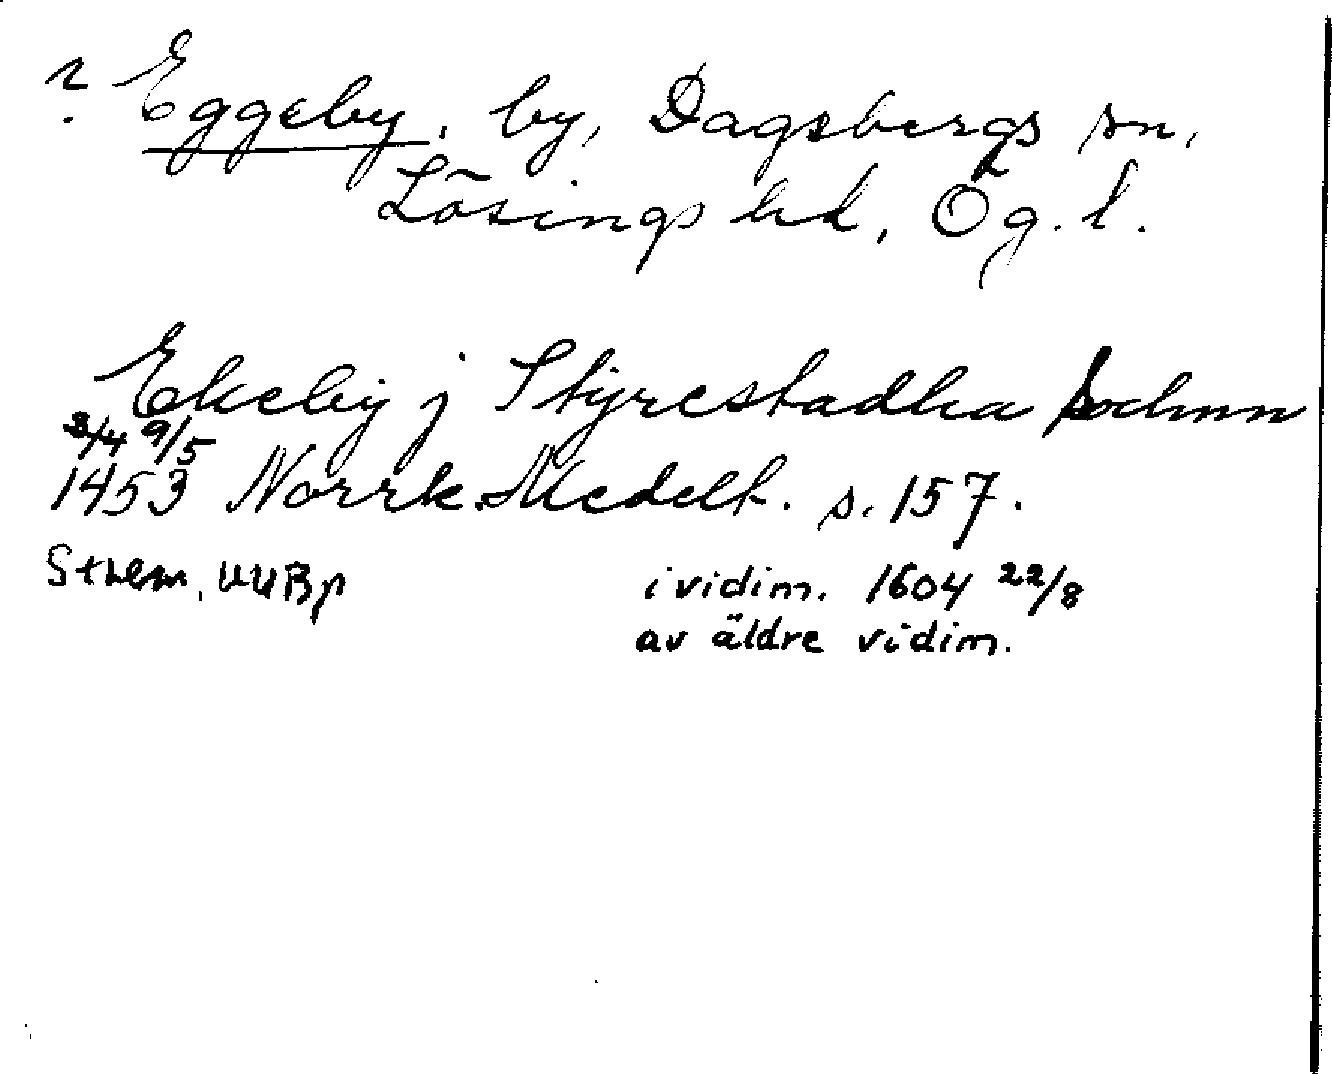 ? Eggeby, by, Dagsbergs sn,
Lösings hd, Ög. l.
Ekeby j Styrestadha sochnn
3/4 9/5
1453 Norrk. Medelt. s. 157.
i vidim. 1604 22/8
av äldre vidim.